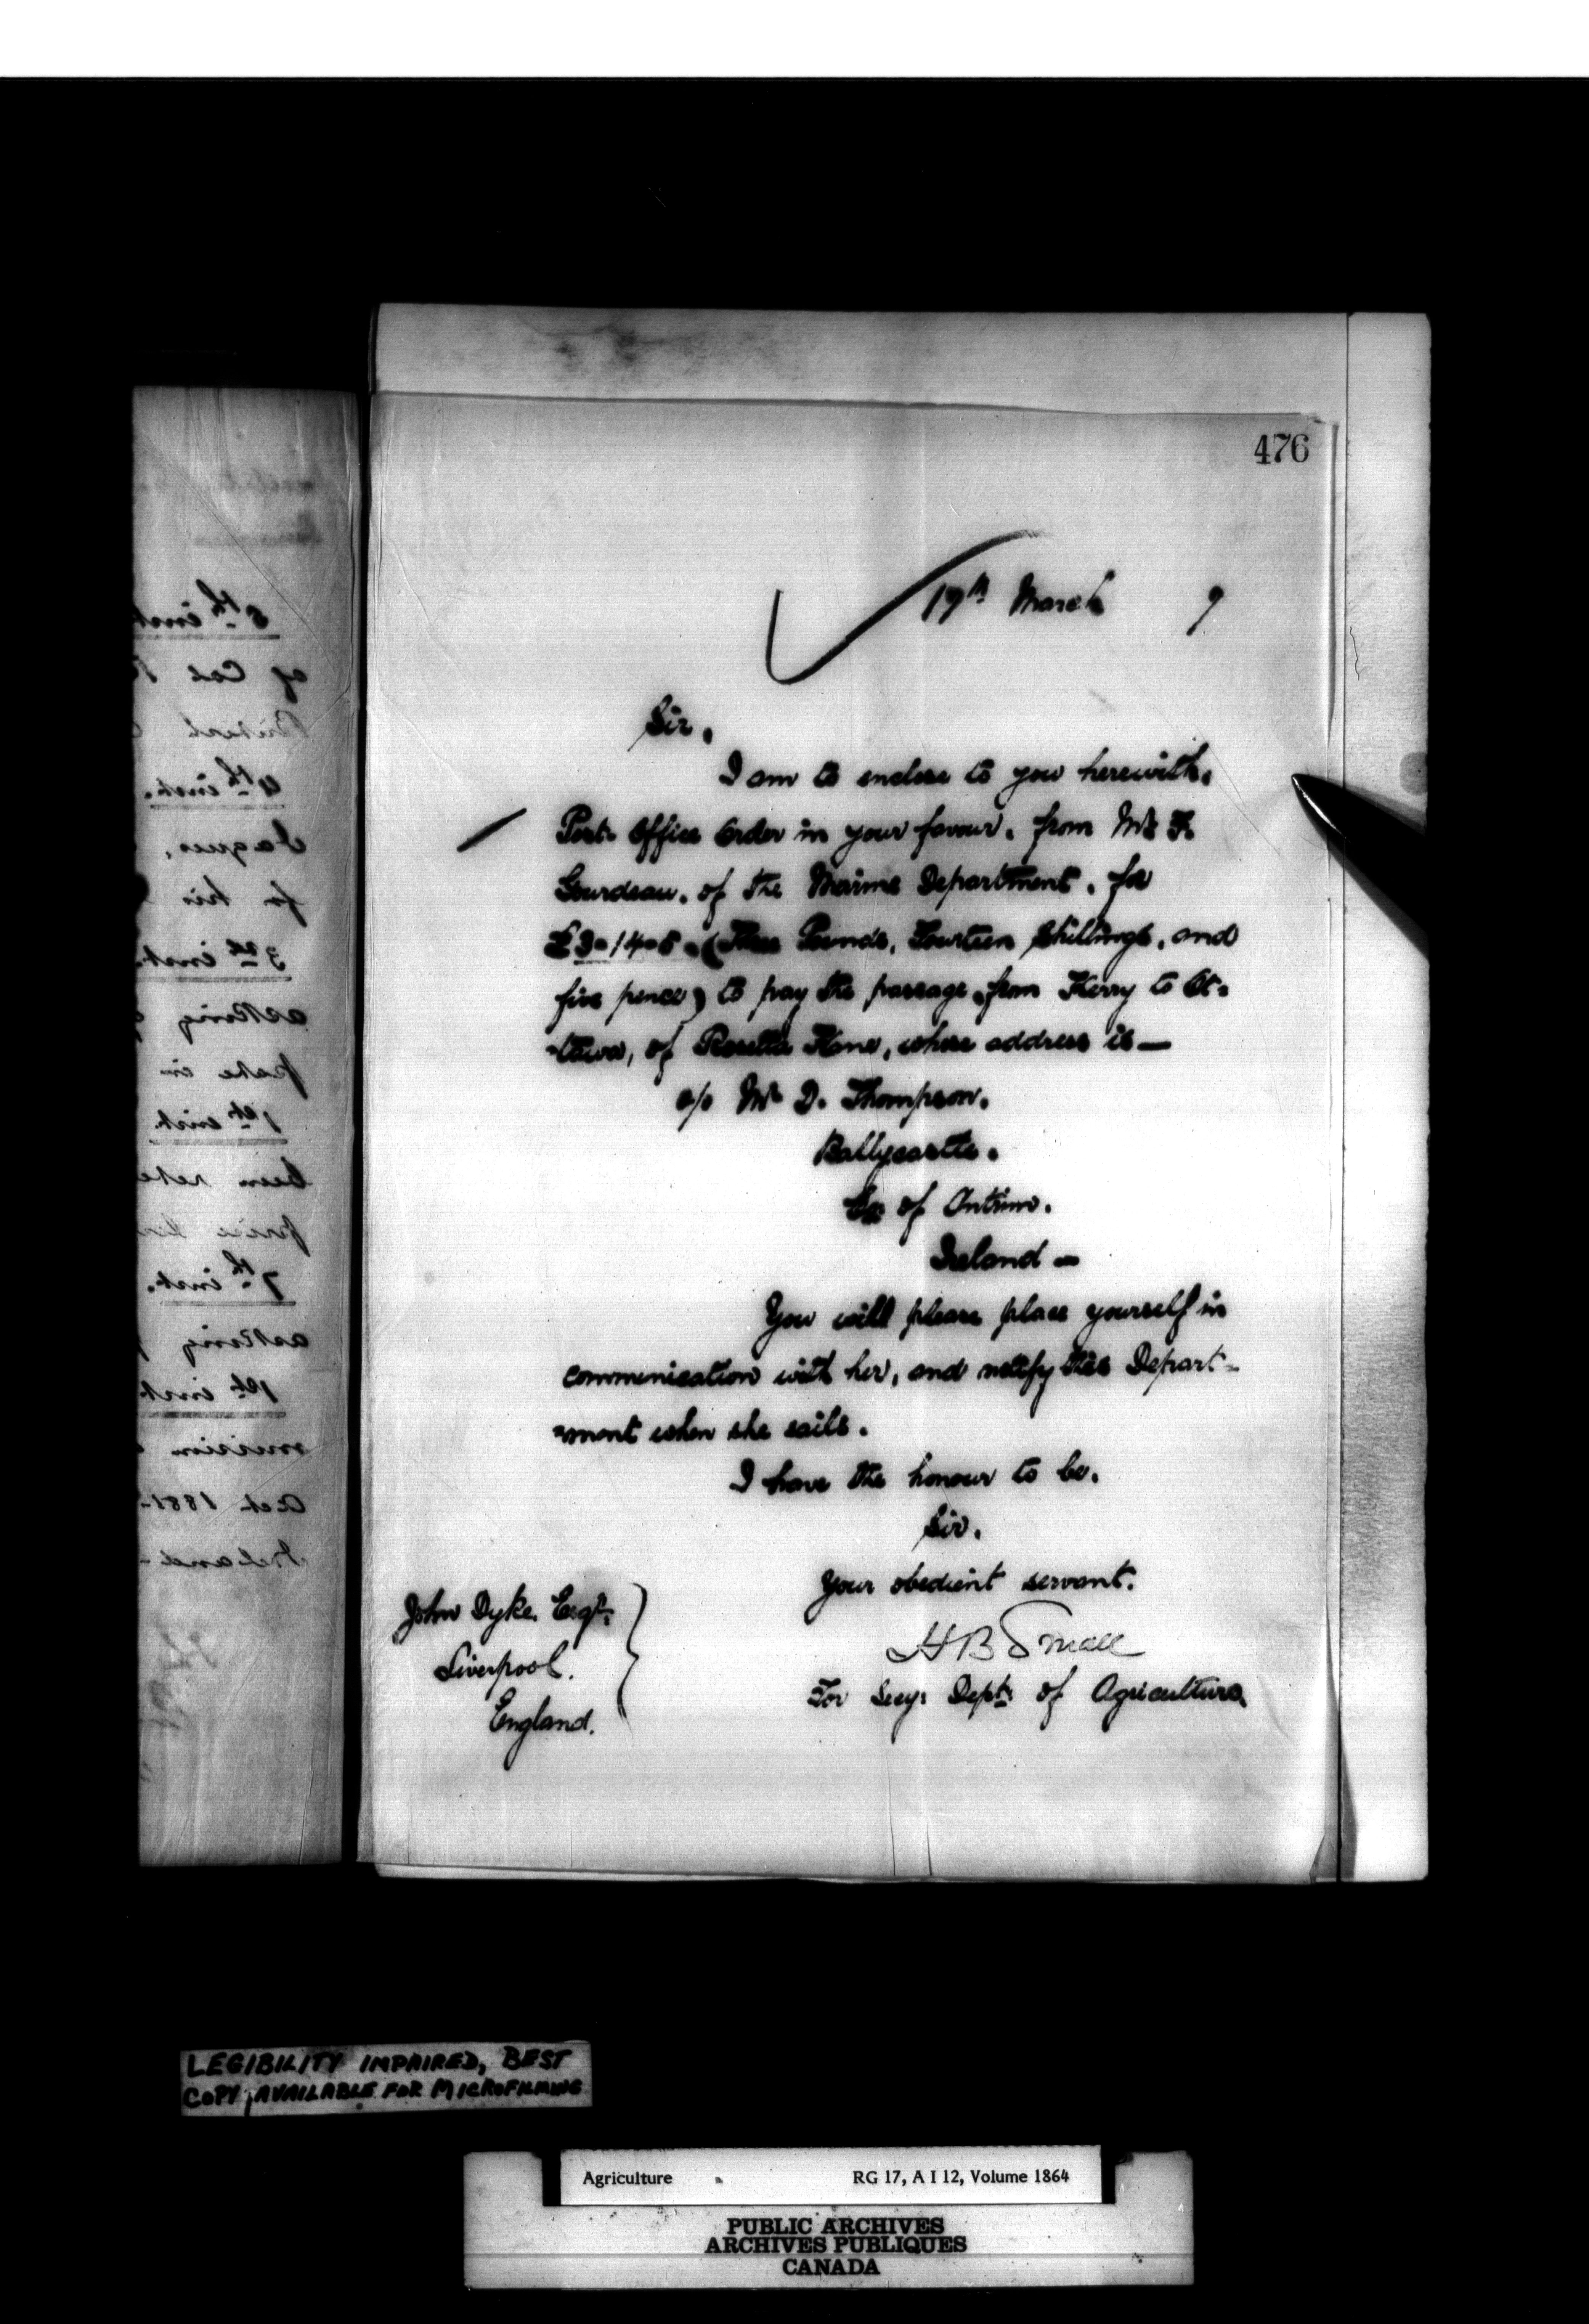 476
17th March 9
Sir,
I am to enclose to you herewith,
Post Office Order in your favour, from Mr F.
Gourdeau, of the Marine Department, for
£3-14-5-(Three Pounds, Fourteen Shillings, and
five pence) to pay the passage, from Kerry to Ot-
-tawa, of Rosetta Kane, whose address is—
c/o Mr D. Thompson.
Ballycastle.
Co of Antrim.
Ireland -
You will please place yourself in
communication with her, and notify this Depart-
-ment when she sails.
I have the honour to be,
Sir,
Your obedient servant.
H B Small
For Secy: Dept: of Agriculture
John Dyke, Esqr.
Liverpool.
England.
LEGIBILITY IMPAIRED, BEST
COPY AVAILABLE FOR MICROFILMING
Agriculture RG 17, A I 12, Volume 1864
PUBLIC ARCHIVES
ARCHIVES PUBLIQUES
CANADA